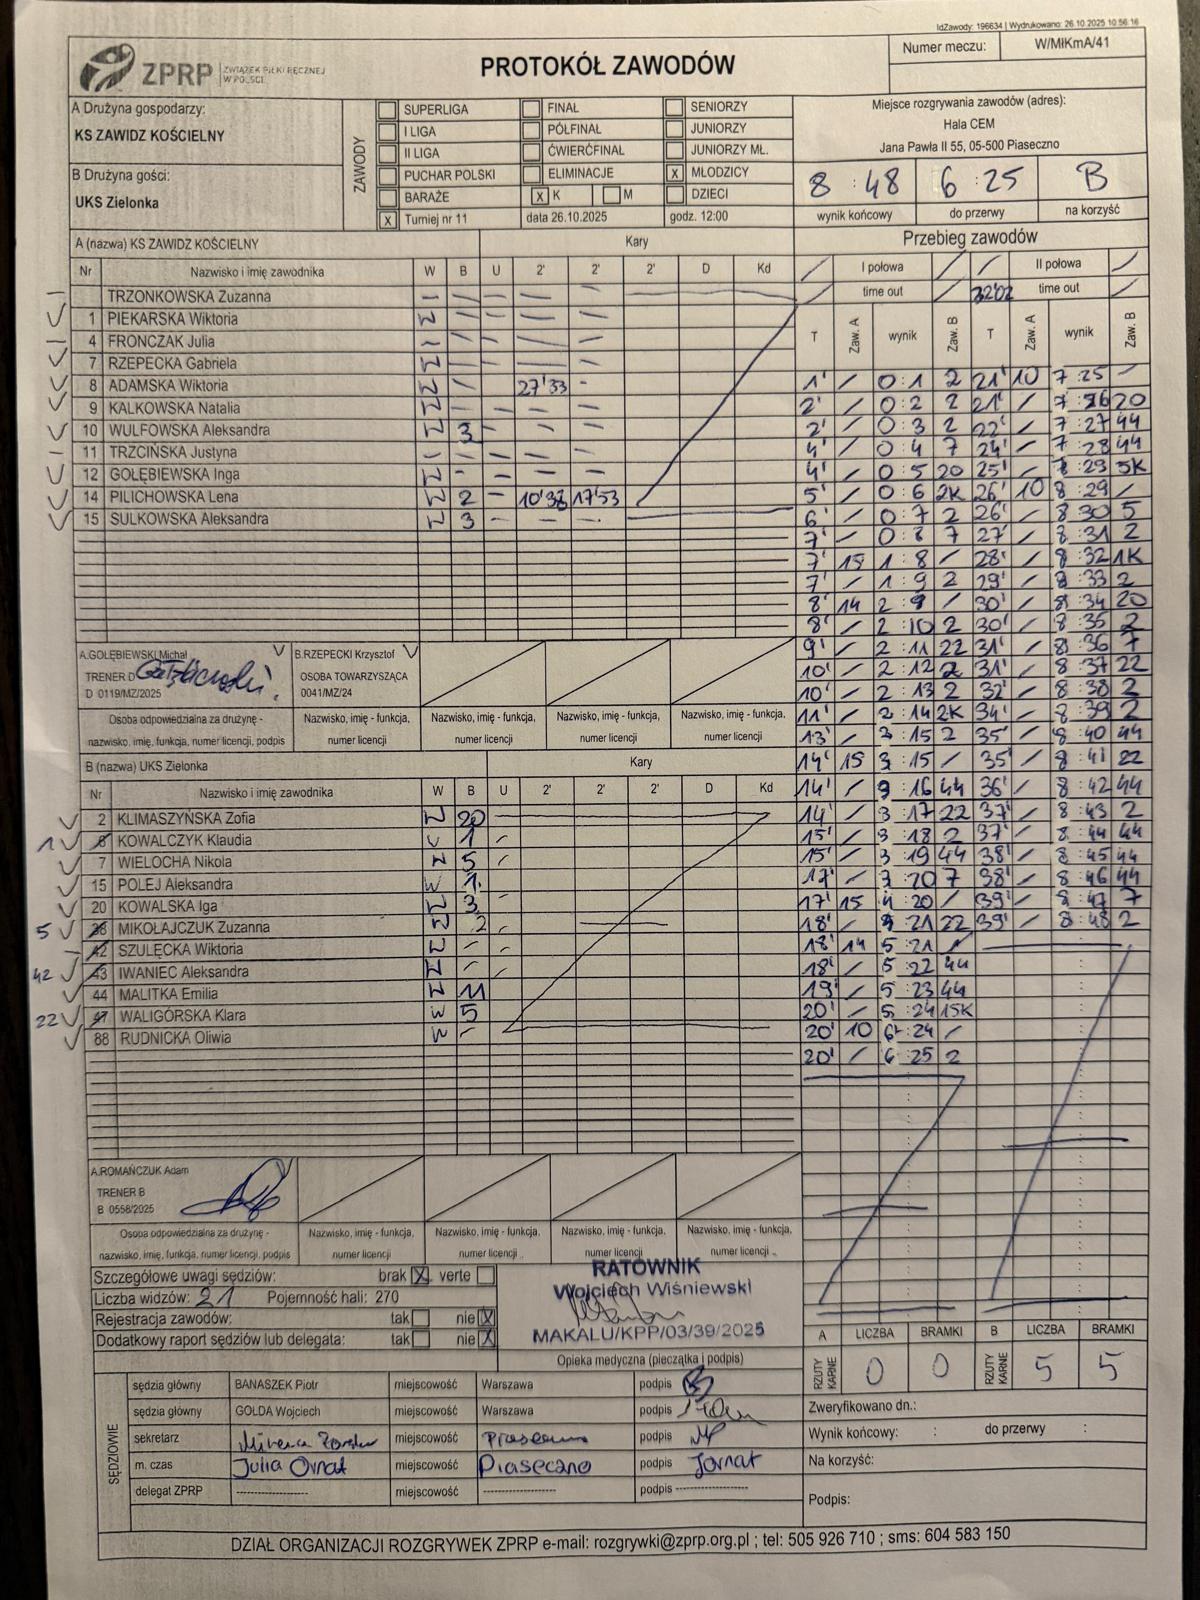 IdZawody: 196634 | Wydrukowano: 26.10.2025 10:56:16
ZPRP ZWIĄZEK PIŁKI RĘCZNEJ W POLSCE
PROTOKÓŁ ZAWODÓW
Numer meczu: W/MłKmA/41
A Drużyna gospodarzy:
KS ZAWIDZ KOŚCIELNY
B Drużyna gości:
UKS Zielonka
ZAWODY
SUPERLIGA FINAŁ SENIORZY
I LIGA PÓŁFINAŁ JUNIORZY
II LIGA ĆWIERĆFINAŁ JUNIORZY MŁ.
PUCHAR POLSKI ELIMINACJE x MŁODZICY
BARAŻE x K M DZIECI
x Turniej nr 11 data 26.10.2025 godz. 12:00
Miejsce rozgrywania zawodów (adres):
Hala CEM
Jana Pawła II 55, 05-500 Piaseczno
8 : 48 6 : 25 B
wynik końcowy do przerwy na korzyść
A (nazwa) KS ZAWIDZ KOŚCIELNY Kary
Nr Nazwisko i imię zawodnika W B U 2' 2' 2' D Kd
TRZONKOWSKA Zuzanna
1 PIEKARSKA Wiktoria
4 FRONCZAK Julia
7 RZEPECKA Gabriela
8 ADAMSKA Wiktoria 27'33 -
9 KALKOWSKA Natalia
10 WULFOWSKA Aleksandra 3
11 TRZCIŃSKA Justyna
12 GOŁĘBIEWSKA Inga
14 PILICHOWSKA Lena 2 - 10'38 17'53
15 SULKOWSKA Aleksandra 3
A.GOŁĘBIEWSKI Michał
TRENER D
D 0119/MZ/2025
B.RZEPECKI Krzysztof
OSOBA TOWARZYSZĄCA
0041/MZ/24
Osoba odpowiedzialna za drużynę - nazwisko, imię, funkcja, numer licencji, podpis
Nazwisko, imię - funkcja, numer licencji
Nazwisko, imię - funkcja, numer licencji
Nazwisko, imię - funkcja, numer licencji
Nazwisko, imię - funkcja, numer licencji
B (nazwa) UKS Zielonka Kary
Nr Nazwisko i imię zawodnika W B U 2' 2' 2' D Kd
2 KLIMASZYŃSKA Zofia 20
1 KOWALCZYK Klaudia 1
7 WIELOCHA Nikola 5
15 POLEJ Aleksandra 1
20 KOWALSKA Iga 3
5 MIKOŁAJCZUK Zuzanna 2
42 SZULĘCKA Wiktoria
42 43 IWANIEC Aleksandra
44 MALITKA Emilia 11
22 47 WALIGÓRSKA Klara 5
88 RUDNICKA Oliwia
A.ROMAŃCZUK Adam
TRENER B
B 0558/2025
Osoba odpowiedzialna za drużynę - nazwisko, imię, funkcja, numer licencji, podpis
Nazwisko, imię - funkcja, numer licencji
Nazwisko, imię - funkcja, numer licencji
Nazwisko, imię - funkcja, numer licencji
Nazwisko, imię - funkcja, numer licencji
Szczegółowe uwagi sędziów: brak X verte
Liczba widzów: 21 Pojemność hali: 270
Rejestracja zawodów: tak nie X
Dodatkowy raport sędziów lub delegata: tak nie X
RATOWNIK
Wojciech Wiśniewski
MAKALU/KPP/03/39/2025
Opieka medyczna (pieczątka i podpis)
SĘDZIOWIE
sędzia główny BANASZEK Piotr miejscowość Warszawa podpis
sędzia główny GOLDA Wojciech miejscowość Warszawa podpis
sekretarz miejscowość Piaseczno podpis
m. czas Julia Ornat miejscowość Piaseczno podpis Jornat
delegat ZPRP ---------- miejscowość ---------- podpis ----------
Przebieg zawodów
I połowa II połowa
time out time out
32'02
T Zaw. A wynik Zaw. B T Zaw. A wynik Zaw. B
1' / 0 : 1 2 21' 10 7 : 25 /
2' / 0 : 2 2 21' / 7 : 26 20
2' / 0 : 3 2 22' / 7 : 27 44
4' / 0 : 4 7 24' / 7 : 28 44
4' / 0 : 5 20 25' / 7 : 29 5K
5' / 0 : 6 2K 26' 10 8 : 29 /
6' / 0 : 7 2 26' / 8 : 30 5
7' / 0 : 8 7 27' / 8 : 31 2
7' 15 1 : 8 / 28' / 8 : 32 1K
7' / 1 : 9 2 29' / 8 : 33 2
8' 14 2 : 9 / 30' / 8 : 34 20
8' / 2 : 10 2 30' / 8 : 35 2
9' / 2 : 11 22 31' / 8 : 36 7
10' / 2 : 12 2 31' / 8 : 37 22
10' / 2 : 13 2 32' / 8 : 38 2
11' / 2 : 14 2K 34' / 8 : 39 2
13' / 3 : 15 2 35' / 8 : 40 44
14' 15 3 : 15 / 35' / 8 : 41 22
14' / 3 : 16 44 36' / 8 : 42 44
14' / 3 : 17 22 37' / 8 : 43 2
15' / 3 : 18 2 37' / 8 : 44 44
15' / 3 : 19 44 38' / 8 : 45 44
17' / 3 : 20 7 38' / 8 : 46 44
17' 15 4 : 20 / 39' / 8 : 47 7
18' / 4 : 21 22 39' / 8 : 48 2
18' 14 5 : 21 /
18' / 5 : 22 44
19' / 5 : 23 44
20' / 5 : 24 15K
20' 10 6 : 24 /
20' / 6 : 25 2
A LICZBA BRAMKI B LICZBA BRAMKI
RZUTY KARNE 0 0 RZUTY KARNE 5 5
Zweryfikowano dn.:
Wynik końcowy: : do przerwy :
Na korzyść:
Podpis:
DZIAŁ ORGANIZACJI ROZGRYWEK ZPRP e-mail: rozgrywki@zprp.org.pl ; tel: 505 926 710 ; sms: 604 583 150